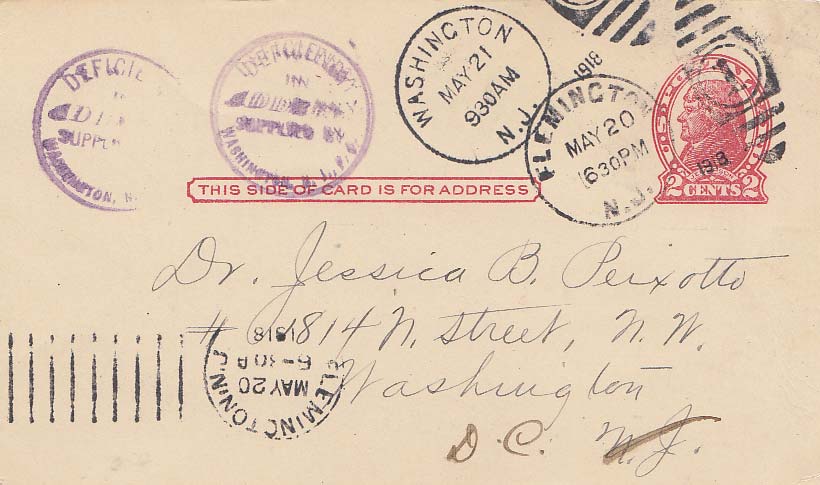 WASHINGTON
MAY 21
930AM
N.J.
1918
DEFICIE
SUPPL
WASHINGTON, N.
IN
SUPPLIED BY
WASHINGTON, N.J., P.O.
FLEMINGTON
MAY 20
630PM
N.J.
1918
2 CENTS 2
THIS SIDE OF CARD IS FOR ADDRESS
Dr. Jessica B. Peixotto
# 1814 N. Street, N. W.
Washington
D. C. N. J.
FLEMINGTON N.J.
MAY 20
6-30 P
1918